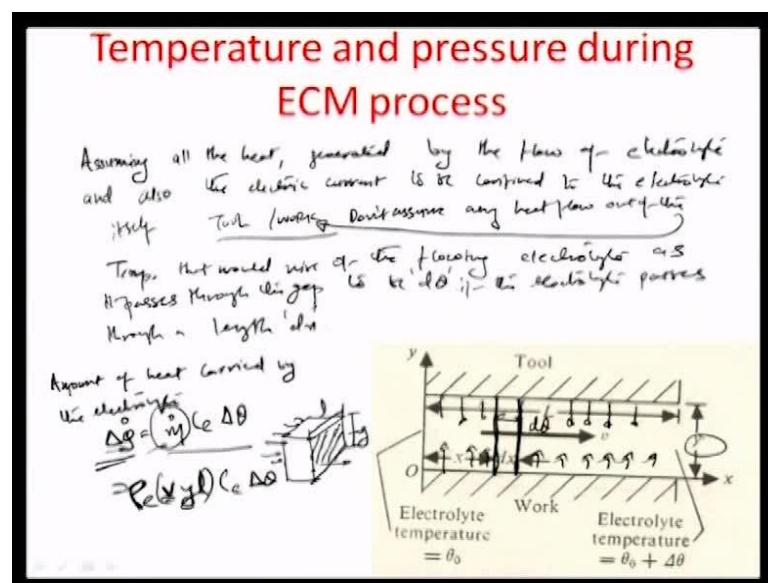 Temperature and pressure during
ECM process
Assuming all the heat, generated by the flow of electrolyte
and also the electric current is to be confined to the electrolyte
itself Tool/work Don't assume any heat flow out of the
Temp. that would rise of the flowing electrolyte as
it passes through this gap is to be 'dθ' if the electrolyte passes
through a length 'dx'
Amount of heat carried by
the electrolyte
ΔQ̇ = (ṁ) Ce Δθ
= ρe(v y l) Ce Δθ
l
y
y
Tool
dθ
v
x
dx
O
x
Work
Electrolyte
temperature
= θ₀
Electrolyte
temperature
= θ₀ + Δθ